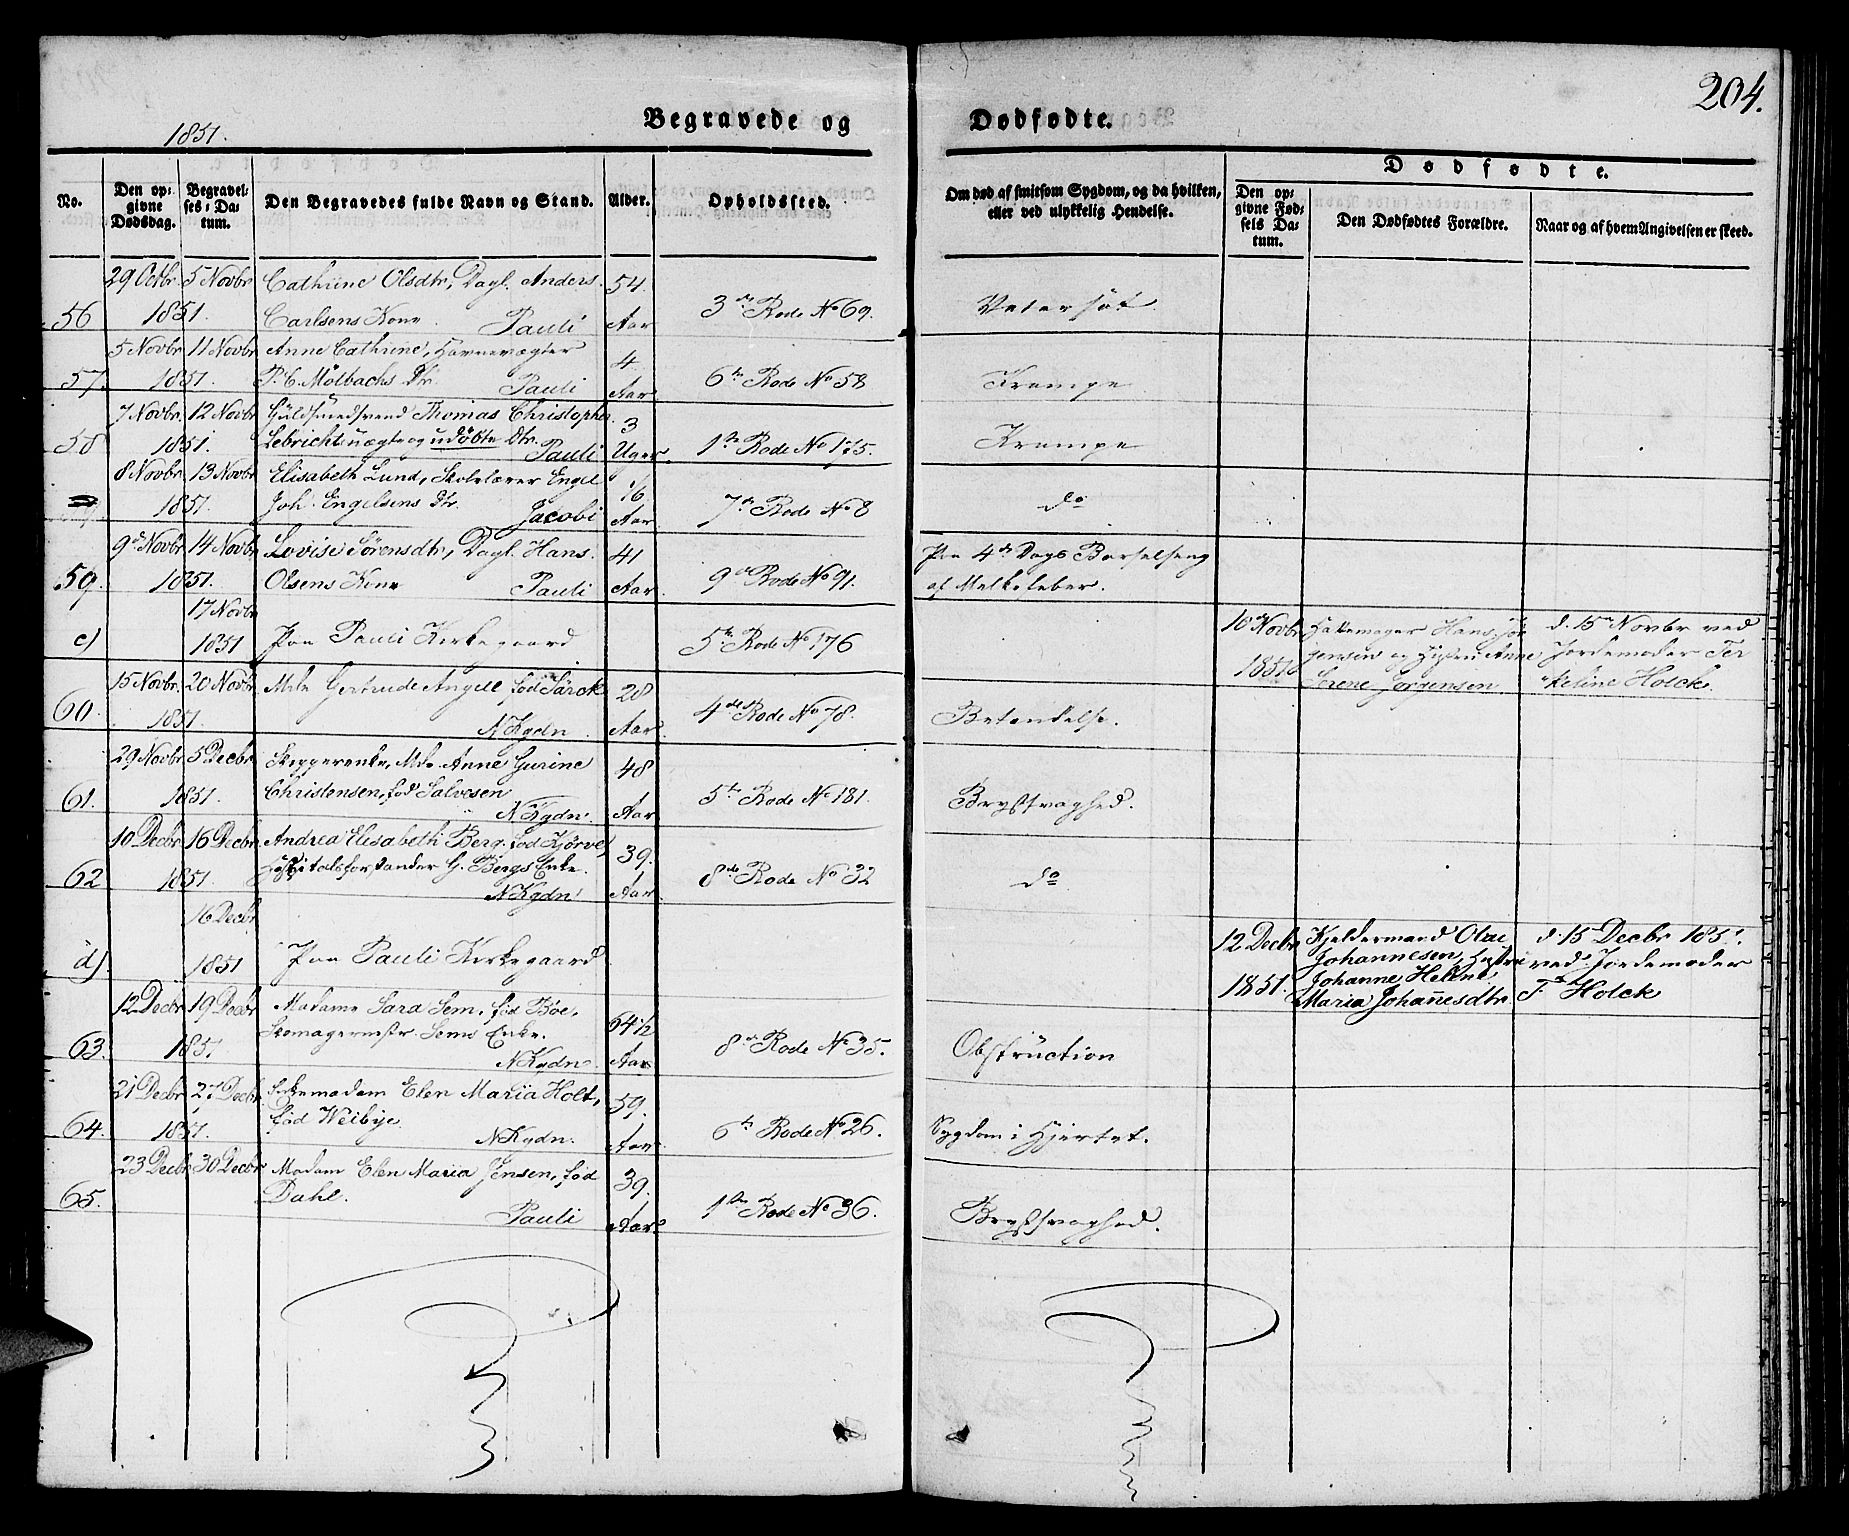 204.
1851.
Begravede og Dødfødte.
No.
Den opgivne Dødsdag.
Begravelses-Datum.
Den Begravedes fulde Navn og Stand.
Alder.
Opholdssted.
Om død af smitsom Sygdom, og da hvilken, eller ved ulykkelig Hendelse.
Dødfødte.
Den opgivne Fødsels Datum.
Den Dødfødtes Forældre.
Naar og af hvem Angivelsen er skeed.
29 Octbr 5 Novbr Cathrine Olsdtr, Dagl. Anders 54
56 1851. Carlsens Kone Pauli Aar 3die Rode No 69. Vatersot
5 Novbr 11 Novbr Anne Cathrine, Havnevægter 4
57. 1851. P. C. Mölbachs Dtr. Pauli Aar 6te Rode No 58 Krampe
7 Novbr. 12 Novbr Guldsmedsvend Thomas Christopher 3
58 1851. Lebrichts uægte og udöbte Dtr. Pauli Uger 1ste Rode No 175. Krampe
8 Novbr. 13 Novbr Elisabeth Lund, Skolelærer Engel 1/6
1851. Joh. Engelsens Dtr. Jacobi Aar 7de Rode No 8 do
9de Novbr 14 Novbr Lovise Sörensdtr, Dagl. Hans 41 Paa 4de Dags Barselseng
59. 1851. Olsens Kone Pauli Aar 9de Rode No 91. af Melkefeber.
17 Novbr 10 Novbr Hattemager Hans Jör d. 15de Novbr ved
c) 1851 Paa Pauli Kirkegaard 5te Rode No 176 gensen og Hustru Anne Jordemoder Ter
1851 Serene Jörgensen keline Holck.
15 Novbr. 20 Novbr Mde Gertrude Angell, fød Särck 28
60. 1851. N Kgdn Aar 4de Rode No 78. Betændelse.
29 Novbr 5 Decbr Skipperenke, Mde Anne Gurine 48
61. 1851. Christensen, fød Salvesen N Kgdn. Aar 5te Rode No 181. Brystsvaghed.
10 Decbr 16 Decbr Andrea Elisabeth Berg, fød Kjörve, 39.
62 1851. Hospitalsforstander G. Bergs Enke. N Kgdn Aar 8de Rode No 32 do
16 Decbr 12 Decbr Kjeldermand Olai d. 15 Decbr 1851.
d) 1851 Paa Pauli Kirkegaard Johannesen, Hustru ved Jordemoder
1851. Johanne Helene Maria Johannesdtr. T Holck
12 Decbr 19 Decbr Madame Sara Sem, fød Böe, 64 1/2
63. 1851 Skomagermstr. Sems Enke. N Kgdn. Aar 8de Rode No 35. Obstruction
21 Decbr 27 Decbr Enkemadam Elen Maria Holt, 59.
64. 1851. fød Weibye N Kgdn. Aar 6te Rode No 26. Sygdom i Hjertet.
23 Decbr 30 Decbr Madam Elen Maria Jensen, fød 39.
65. Dahl. Pauli Aar 1ste Rode No 36. Brystsvaghed.